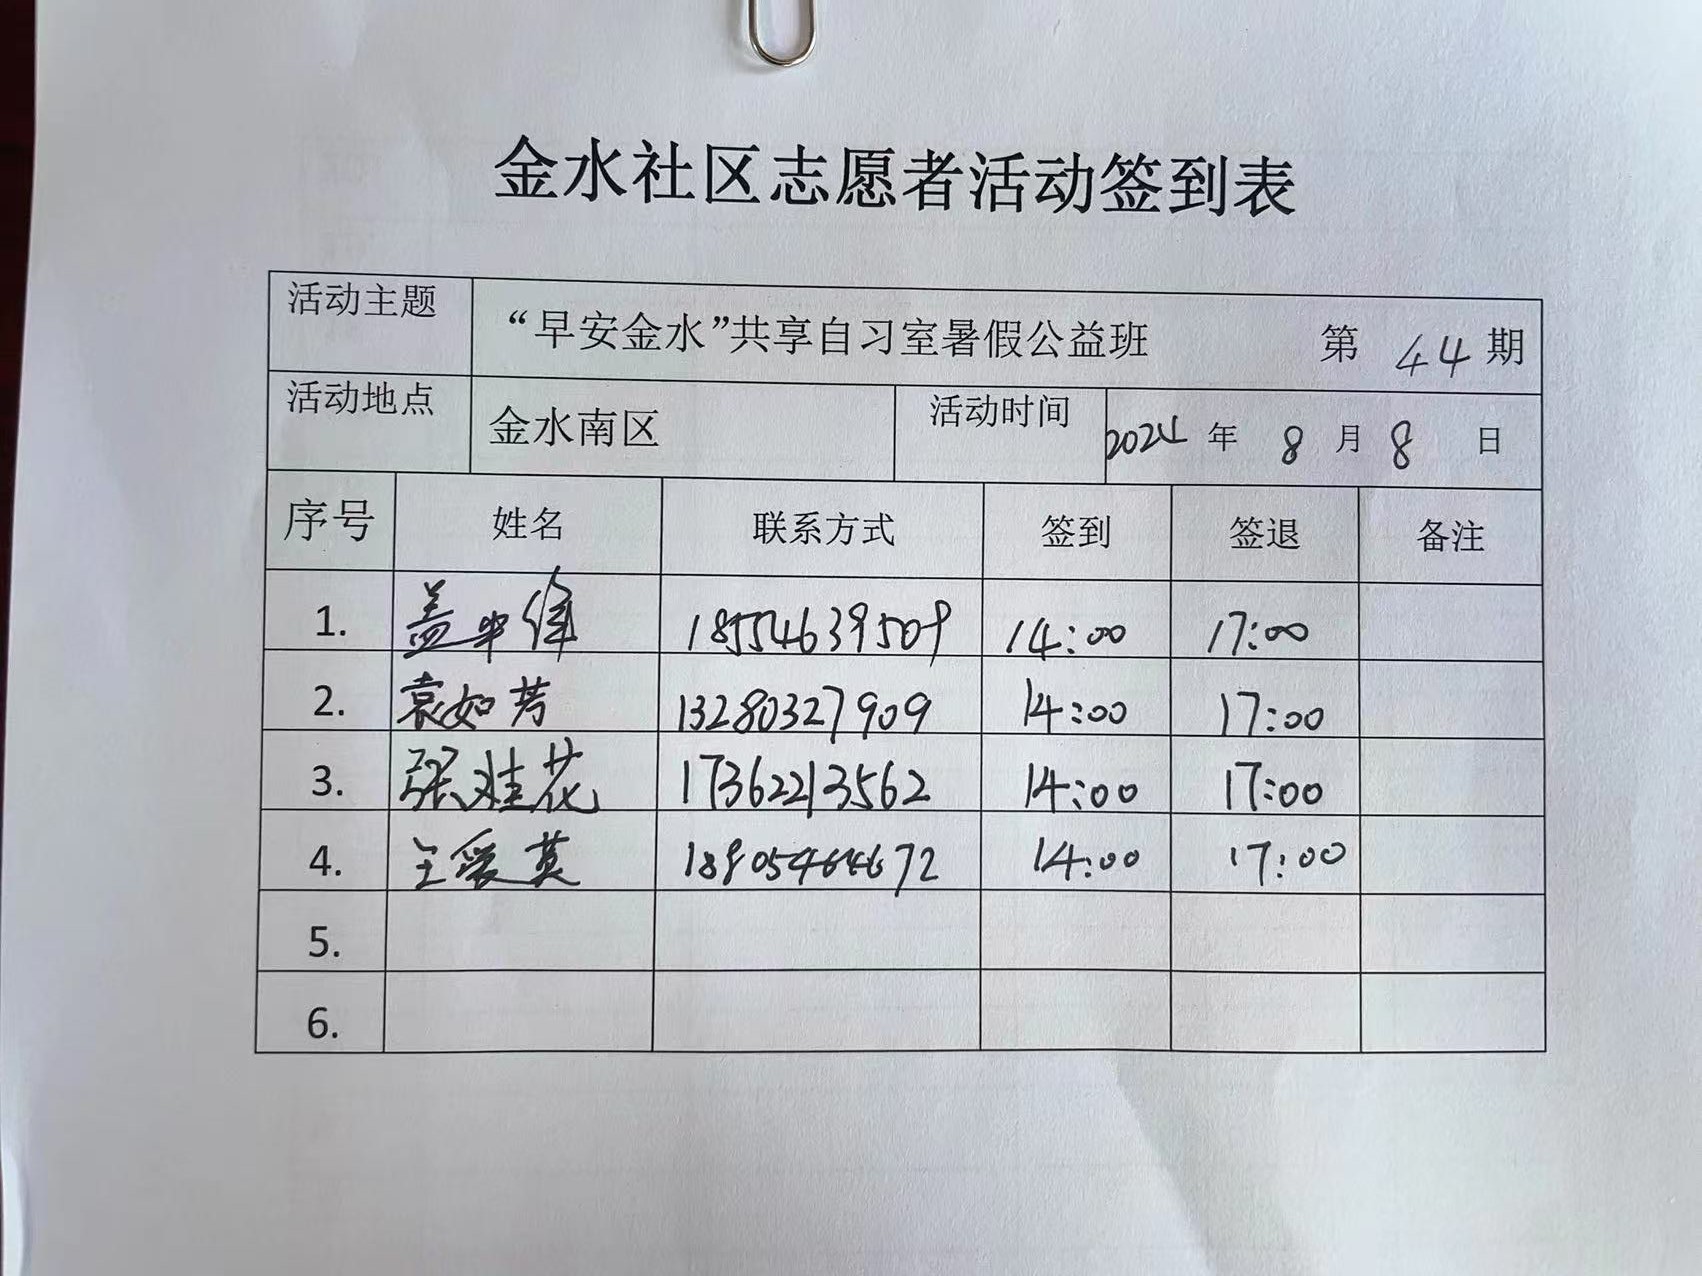 金水社区志愿者活动签到表
活动主题 “早安金水”共享自习室暑假公益班 第 44 期
活动地点 金水南区 活动时间 2024 年 8 月 8 日
序号 姓名 联系方式 签到 签退 备注
1. 18554639509 14:00 17:00
2. 袁如芳 13280327909 14:00 17:00
3. 张桂花 17362213562 14:00 17:00
4. 王爱英 18905464672 14:00 17:00
5.
6.